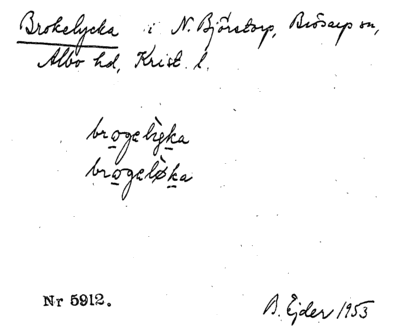 Brokelycka i N. Björstorp, Brösarp sn,
Albo hd, Krist. l.
brogelỳka
brogelø̀ka
Nr 5912.
B. Ejder 1953